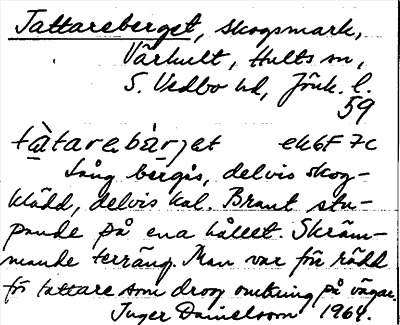 Tattareberget, skogsmark,
Vårkult, Hults sn,
S. Vedbo hd, Jönk. l.
59
ek6F 7c
Lång bergås, delvis skog-
klädd, delvis kal. Brant stu-
pande på ena hållet. Skräm-
mande terräng. Man var förr rädd
för tattare som drog omkring på vägar.
Inger Danielsson 1964.